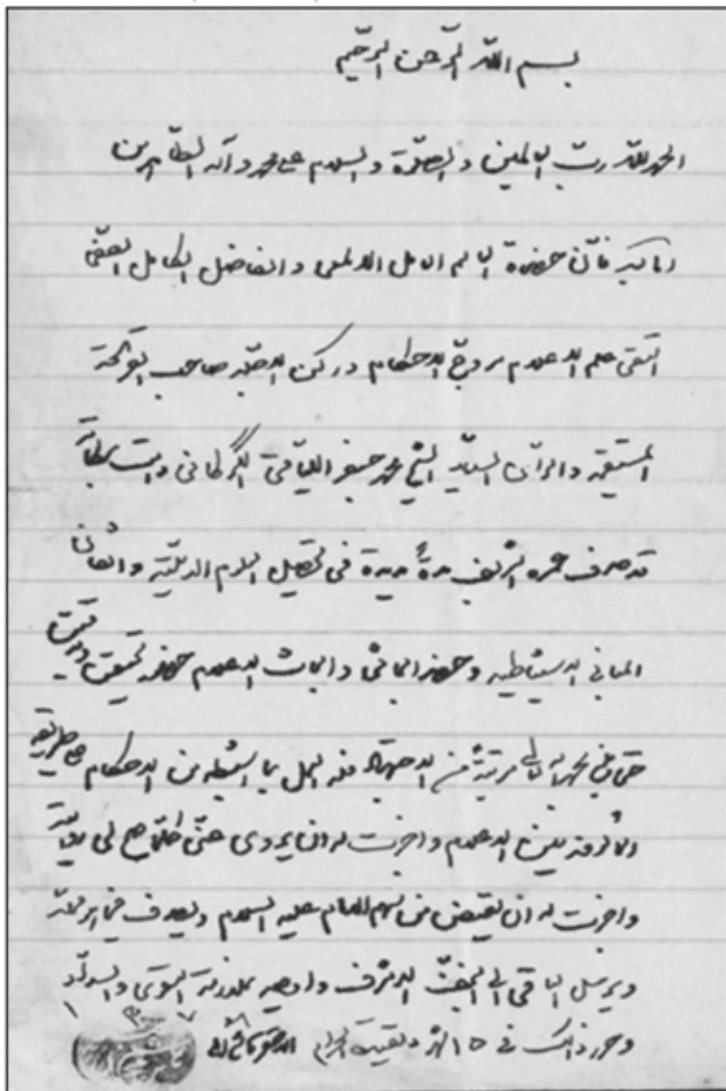 بسم الله الرحمن الرحیم
الحمد لله رب العالمین والصلوة والسلام علی محمد وآله الطاهرین
اما بعد فان حضرة العالم العامل الالمعی والفاضل الکامل الصفی
التقی علم الاعلام مروج الاحکام ورکن الاسلام صاحب القریحة
المستقیمة والرأی السدید الشیخ محمد جعفر الگرگانی دامت برکاته
قد صرف عمره الشریف مدة مدیدة فی تحصیل العلوم الدینیة واتقان
المبانی الاستنباطیه وحضر ابحاثی وابحاث الاعلام حضور تحقیق وتدقیق
حتی بلغ بحمد الله تعالی مرتبة من الاجتهاد فله العمل بما استنبطه من الاحکام علی طریقة
المألوفة بین الاعلام واجزت له ان یروی عنی کلما صح لی روایته
واجزت له ان یقبض من سهم الامام علیه السلام ویصرف فی
ویرسل الباقی الی النجف الاشرف واوصیه بملازمة التقوی والسداد
وحرر ذلک فی ١٥ شهر ذیقعدة الحرام